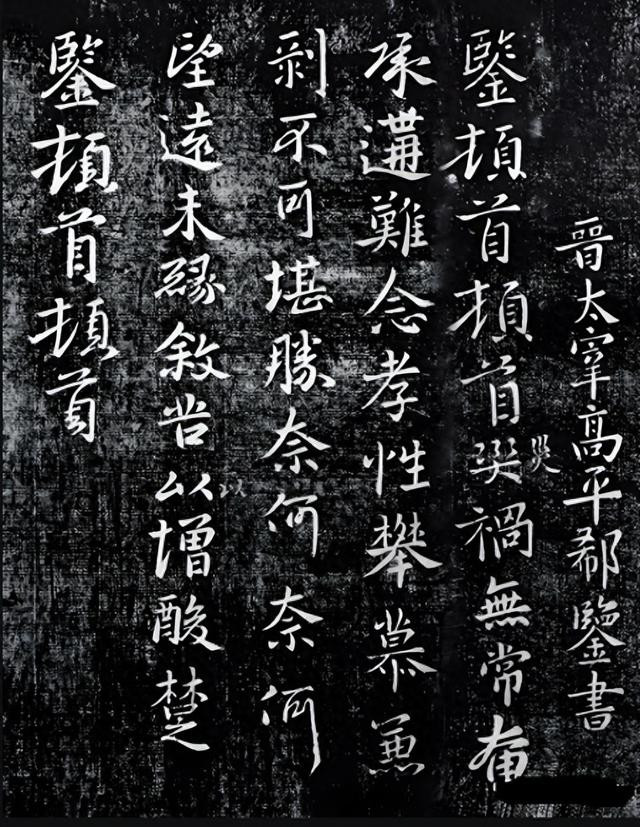 晉太宰高平郗鑒書
鑒頓首頓首災禍無常奄
災
承遘難念孝性攀慕兼
剝不可堪勝奈何奈何
望遠未緣敘苦以增酸楚
以
鑒頓首頓首